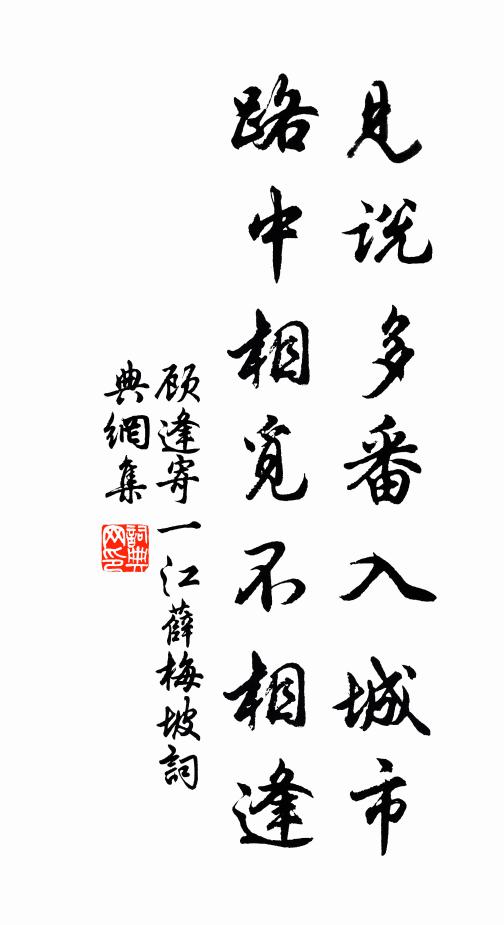 見説多番入城市
路中相覓不相逢
顾逢寄一江薛梅坡詞
典網集
詞典網印